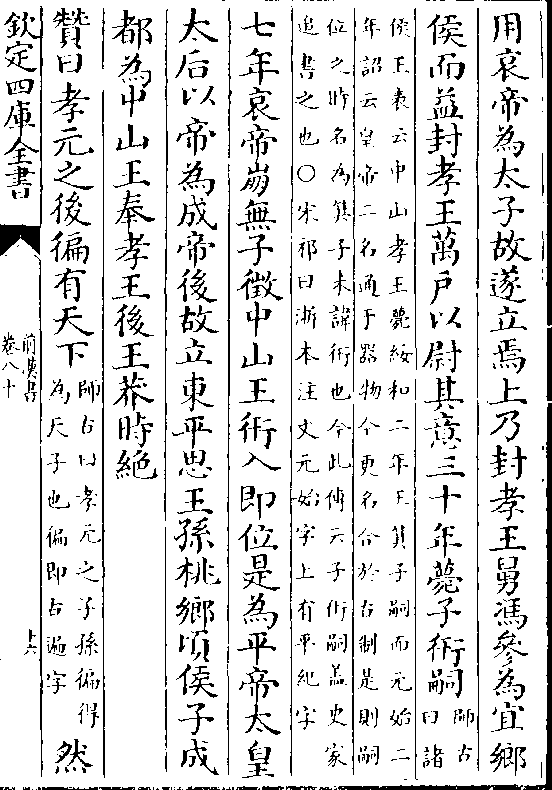 用哀帝為太子故遂立焉上乃封孝王舅馮參為宜鄉
侯而益封孝王萬户以尉其意三十年薨子衎嗣師古曰諸
侯王表云中山孝王薨綏和二年王箕子嗣而元始二
年詔云皇帝二名通于器物今更名合於古制是則嗣
位之時名為箕子未諱衎也今此傳云子衎嗣蓋史家
追書之也○宋祁曰浙本注文元始字上有平紀字
七年哀帝崩無子徵中山王衎入即位是為平帝太皇
太后以帝為成帝後故立東平思王孫桃鄉頃侯子成
都為中山王奉孝王後王莽時絶
贊曰孝元之後徧有天下師古曰孝元之子孫徧得
為天子也徧即古遍字然
欽定四庫全書
前漢書
卷八十
十六